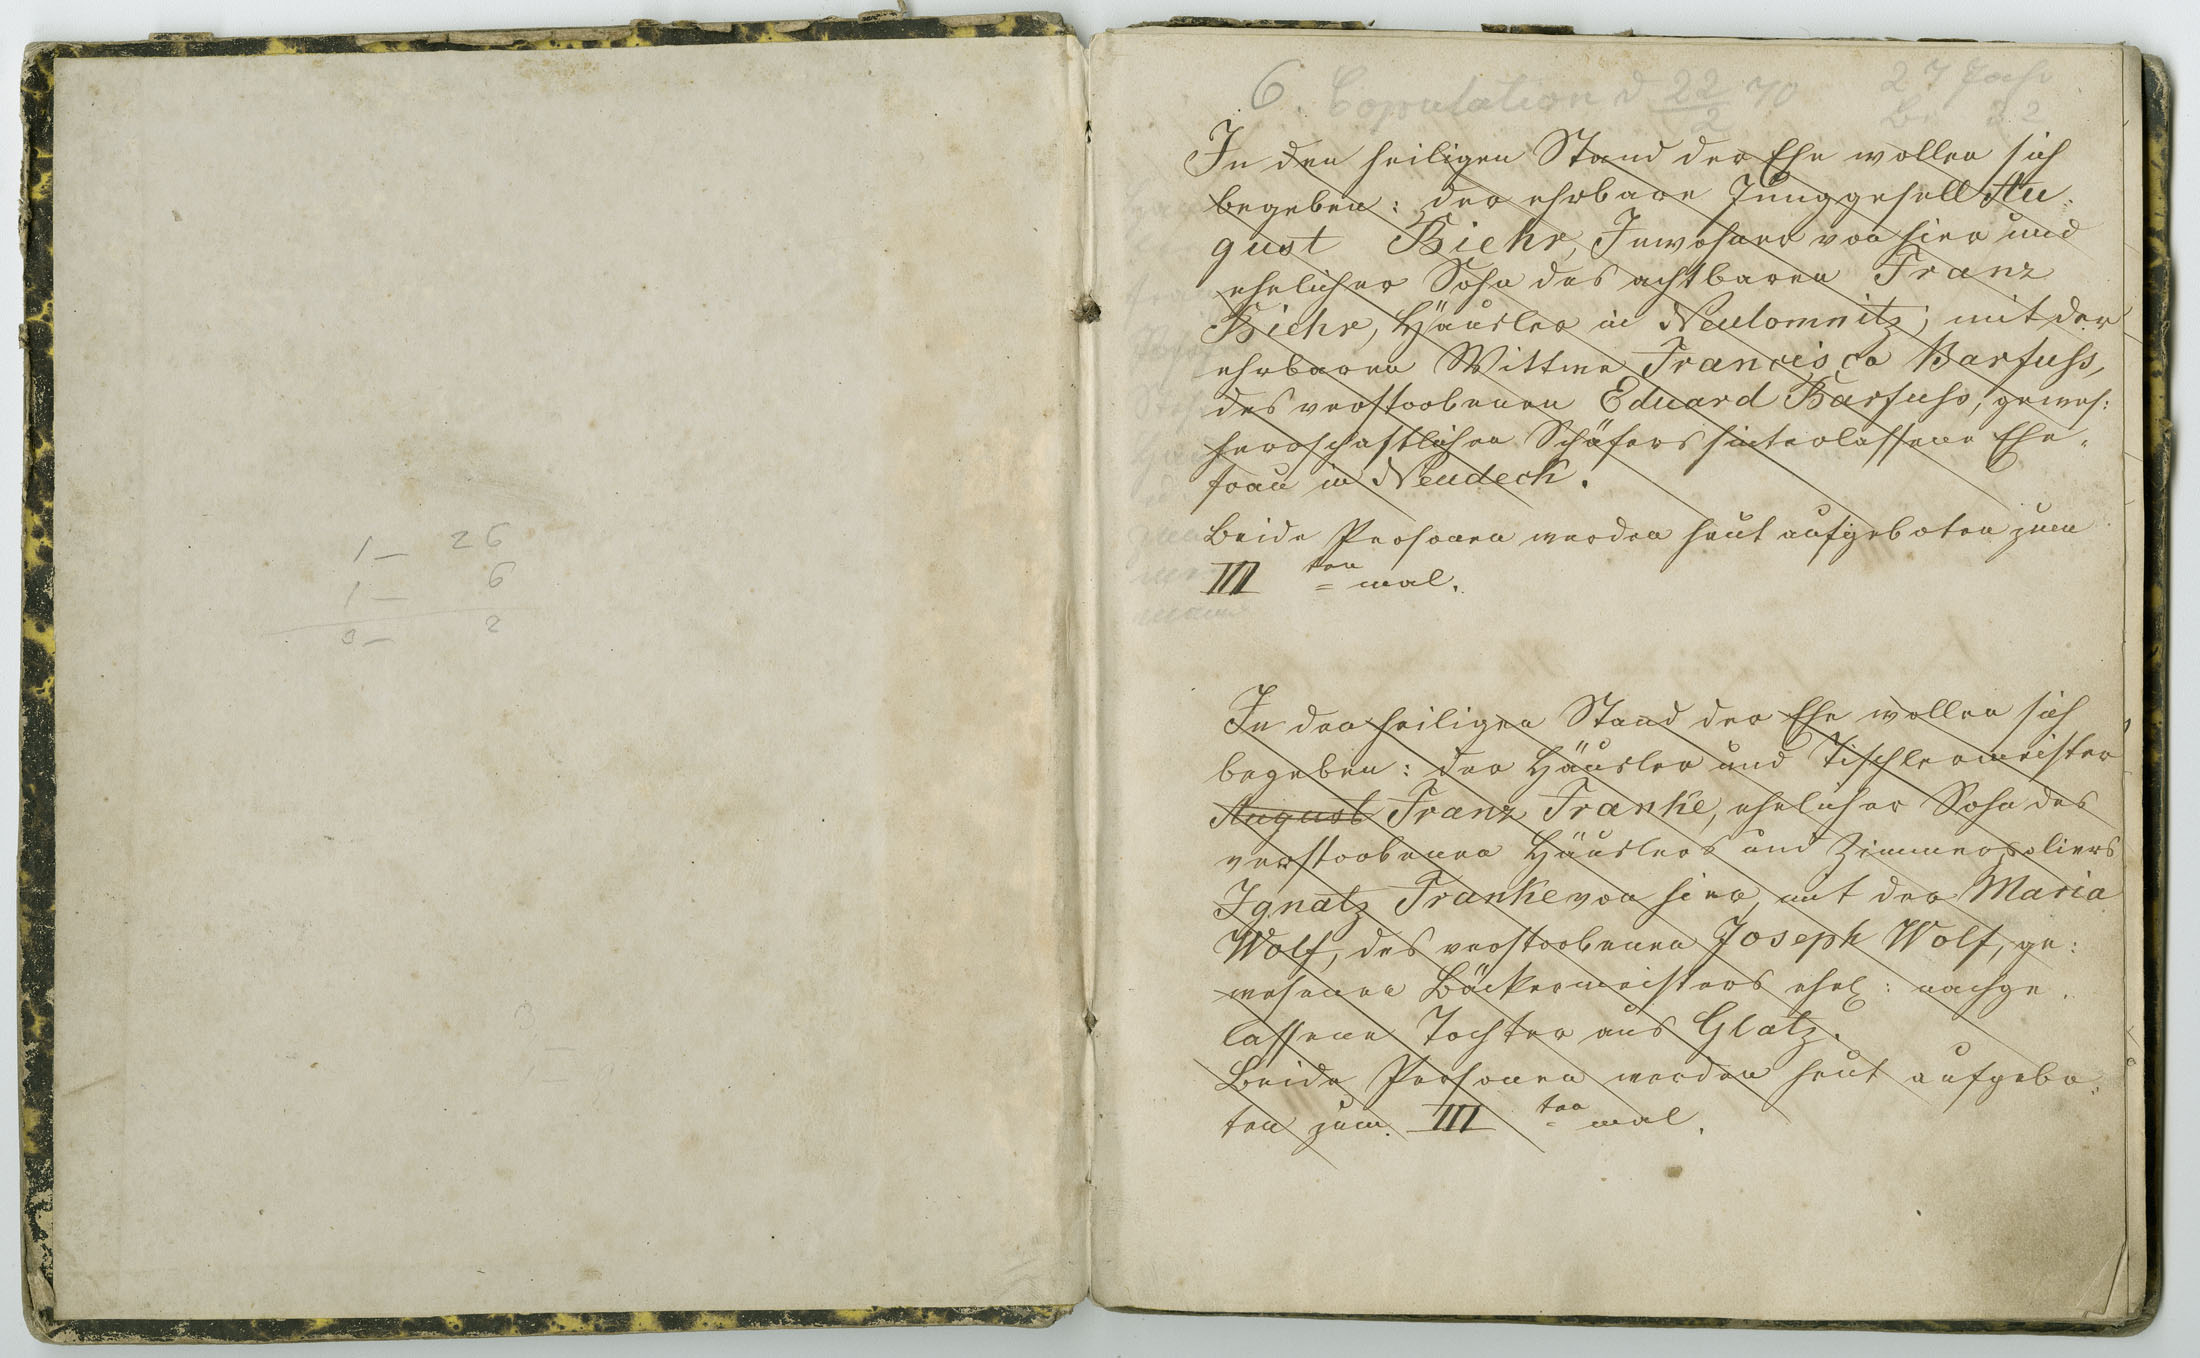 1 – 26
1 – 6
3 – 2
6. Copulation d 22/2 70 27 Jahr
32
In den heiligen Stand der Ehe wollen sich
begeben: der ehrbare Junggesell Au-
gust Biehr, Inwohner von hier und
ehelicher Sohn des achtbaren Franz
Biehr, Häusler in Neulomnitz; mit der
ehrbaren Wittwe Francisca Barfuss,
des verstorbenen Eduard Barfuss, gewes:
herrschaftlichen Schäfers hinterlassene Ehe-
frau in Neudeck.
Beide Personen werden heut aufgeboten zum
III ten mal.
In den heiligen Stand der Ehe wollen sich
begeben: der Häusler und Tischlermeister
August Franz Franke, ehelicher Sohn des
verstorbenen Häuslers und Zimmerpoliers
Ignatz Franke von hier, mit der Maria
Wolf, des verstorbenen Joseph Wolf, ge:
wesenen Bäckermeisters ehel: nachge-
lassene Tochter aus Glatz.
Beide Personen werden heut aufgebo-
ten zum III ten mal.